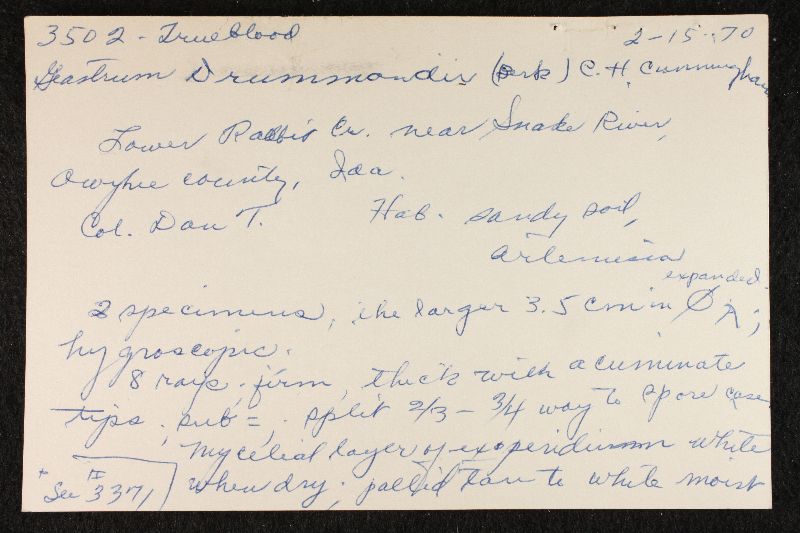 3502 - Trueblood 2-15-70
Geastrum Drummondii (Berk) C. H. Cunningham
Lower Rabbit Cr. near Snake River,
Owyhe county, Ida.
Col. Dan T. Hab. sandy soil,
artemisia
expanded
2 specimens, the larger 3.5 cm in Ø ;
hygroscopic.
8 rays, firm, thick with acuminate
tips, sub =, split 2/3 - 3/4 way to spore case
mycelial layer of exoperidium white
when dry; pallid tan to white moist
* See # 3371